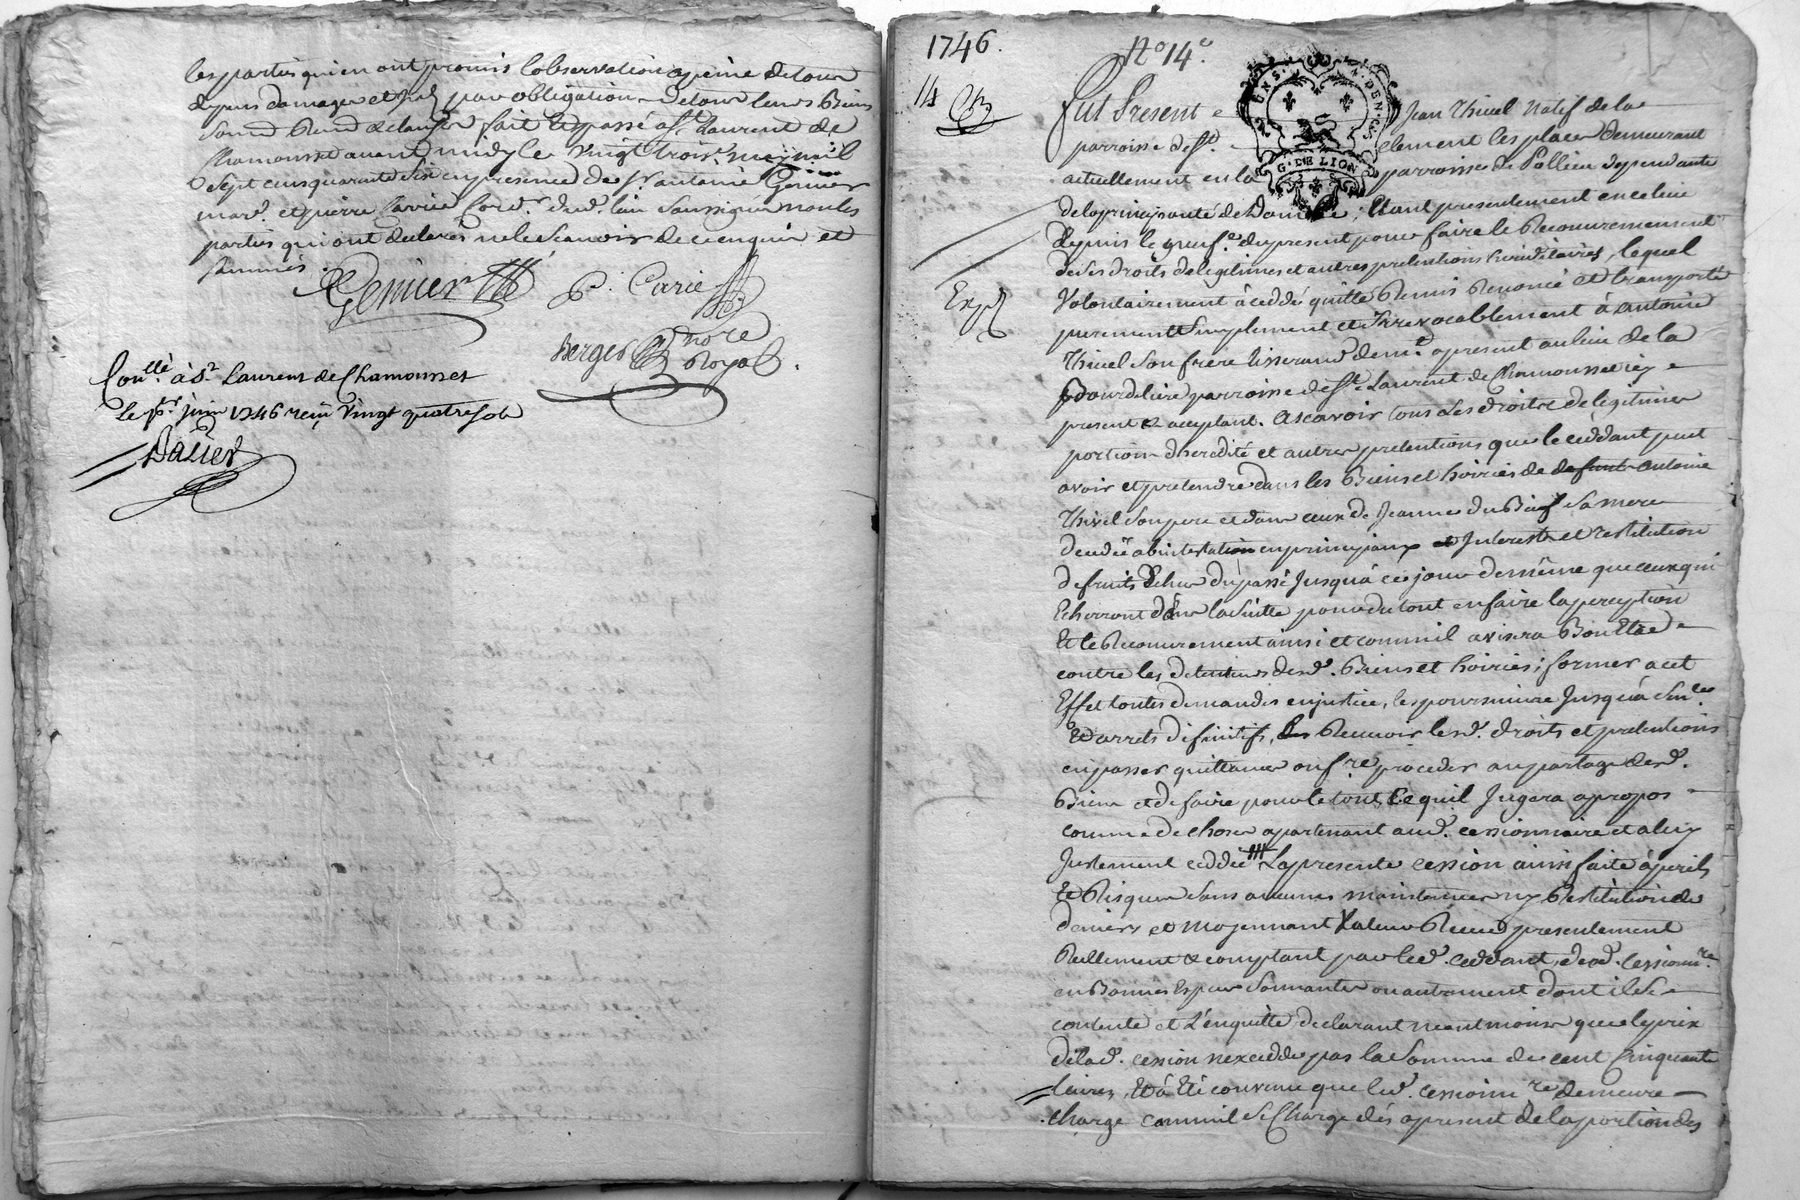 les parties qui en ont promis l'observation a peine de tous
depens damages et par obligation de tous leurs Biens
fait et passé a St Laurent de
Chamousset avant midy le vingt trois may mil
sept cens quarante six en presence de sr antoine Genier
mard. et pierre Carrié dud. lieu soussignes non les
parties qui ont declaré ne le scavoir de ce enquis et
sommés.
Genier
P. Carie
Berger nore Royal.
Conllé à St Laurent de Chamousset
le pr juin 1746 reçu vingt quatre sols
Dalier
1746.
No 14e
114
Fut Present Jean Thivel natif de la
parroisse de St. clement les places demeurant
actuellement en la parroisse de Pollieu dependante
G. DE LION
de la principauté de Dombe; Etant presentement en ce lieu
depuis le neufe du present pour faire le Recouvrement
de ses droits de legitimes et autres pretentions hereditaires, lequel
Volontairement à ceddé quitté Remis Renoncé et transporté
Exp
purement Simplement et Irrevocablement à antoine
Thivel son frere tisserand demt. apresent au lieu de la
Bourdeliere parroisse de St. Laurent de Chamousset icy
present & acceptant. Ascavoir tous Les droits de legitimes
portions d'heredité et autres pretentions que le ceddant peut
avoir et pretendre dans les Biens et hoiries de defunt antoine
Thivel son pere et dans ceux de Jeanne du Bief sa mere
decedée abintestat en principaux et Interests et restitution
de fruits Echus du passé Jusqu'à ce jour de même que ceux qui
Echerront dans la suitte pour du tout en faire la perception
Et le Recouvrement ainsi et comm'il avisera Bon Etre
contre les detenteurs desd. Biens et hoiries; former a cet
Effet toutes demandes en justice, les poursuivre Jusqu'à Sen.ces
Et arrets definitifs, Recevoir lesd. droits et pretentions
en passer quittance ou fre proceder au partage desd.
Biens et de faire pour le tout Ce qu'il Jugera apropos
comme de choses apartenant aud. cessionnaire et a luy
Justement ceddée La presente cession ainsi faite à perils
Et Risques sans aucunes maintenues ny Restitution de
deniers et moyennant Valeur Reçue presentement
Reellement & comptant par led. ceddant, dud. cessionre.
en Bonnes Especes sonnantes ou autrement dont il se
contente et L'en quitte declarant neantmoins que le prix
de lad. cession n'excedde pas la somme de cent Cinquante
livres, Et à Eté convenu que led. cessionre demeure
chargé comm'il se Charge dés apresent de la portion des